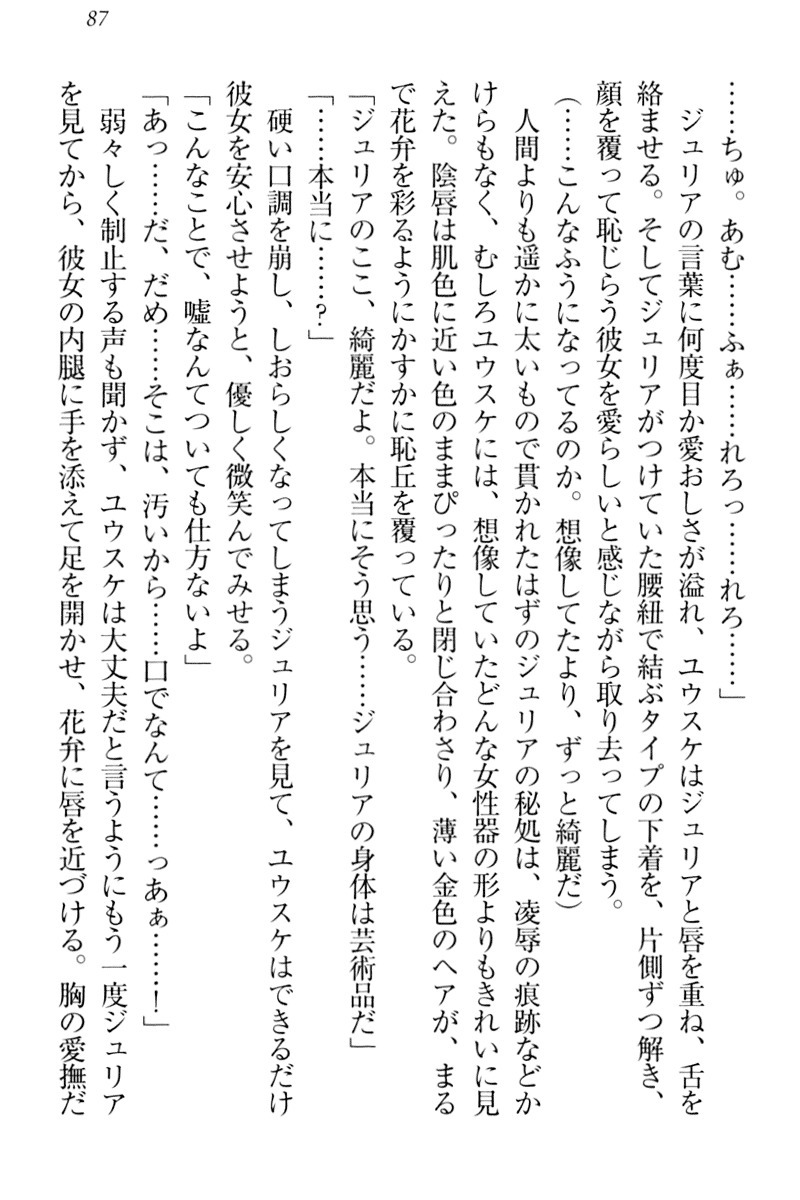 87
……ちゅ。あむ……ふぁ……れろっ……れろ……」
　ジュリアの言葉に何度目か愛おしさが溢れ、ユウスケはジュリアと唇を重ね、舌を
絡ませる。そしてジュリアがつけていた腰紐で結ぶタイプの下着を、片側ずつ解き、
顔を覆って恥じらう彼女を愛らしいと感じながら取り去ってしまう。
（……こんなふうになってるのか。想像してたより、ずっと綺麗だ）
　人間よりも遥かに太いもので貫かれたはずのジュリアの秘処は、凌辱の痕跡などか
けらもなく、むしろユウスケには、想像していたどんな女性器の形よりもきれいに見
えた。陰唇は肌色に近い色のままぴったりと閉じ合わさり、薄い金色のヘアが、まる
で花弁を彩るようにかすかに恥丘を覆っている。
「ジュリアのここ、綺麗だよ。本当にそう思う……ジュリアの身体は芸術品だ」
「……本当に……？」
　硬い口調を崩し、しおらしくなってしまうジュリアを見て、ユウスケはできるだけ
彼女を安心させようと、優しく微笑んでみせる。
「こんなことで、嘘なんてついても仕方ないよ」
「あっ……だ、だめ……そこは、汚いから……口でなんて……っあぁ……！」
　弱々しく制止する声も聞かず、ユウスケは大丈夫だと言うようにもう一度ジュリア
を見てから、彼女の内腿に手を添えて足を開かせ、花弁に唇を近づける。胸の愛撫だ